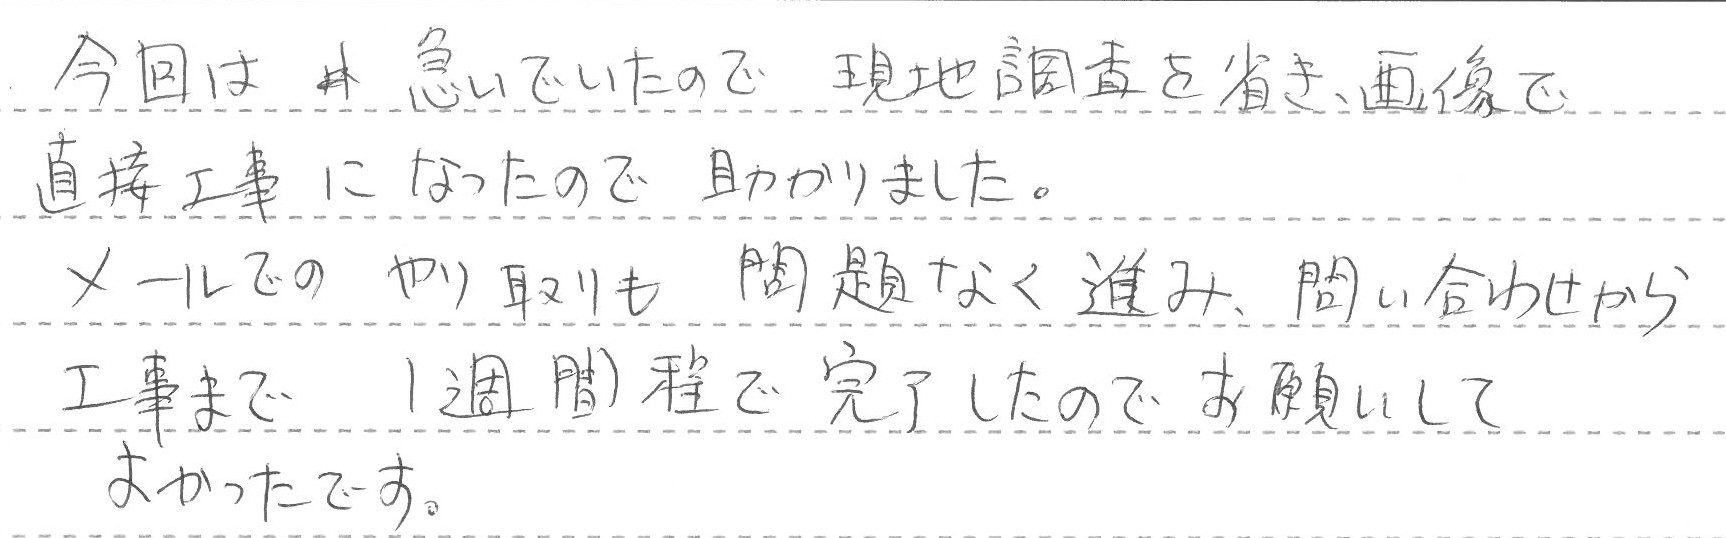 今回は 急いでいたので 現地調査を省き、画像で
直接工事になったので 助かりました。
メールでの やり取りも 問題なく進み、問い合わせから
工事まで 1週間程で完了したのでお願いして
よかったです。